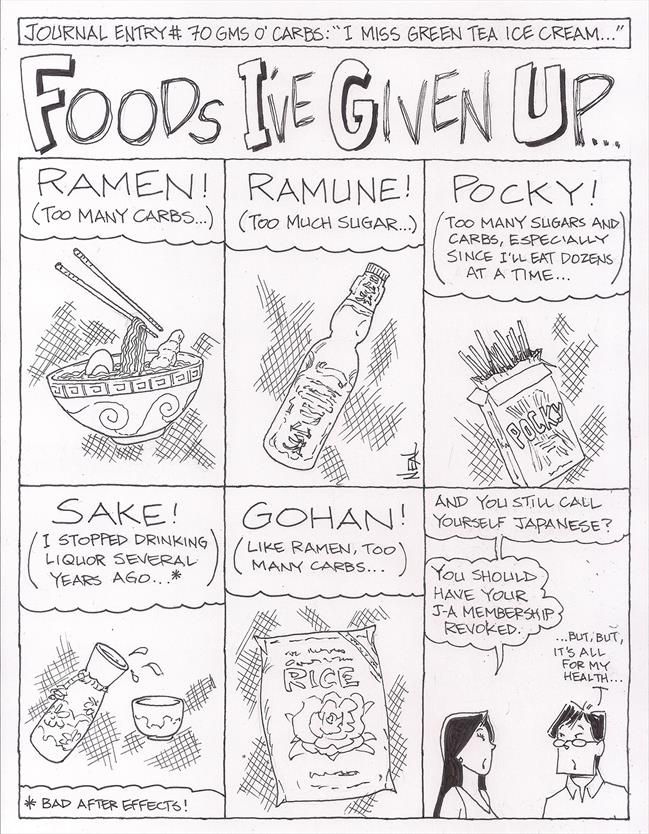 JOURNAL ENTRY# 70 GMS O' CARBS: "I MISS GREEN TEA ICE CREAM..."
FOODS I'VE GIVEN UP...
RAMEN!
(TOO MANY CARBS...)
RAMUNE!
(TOO MUCH SUGAR...)
NEAL
POCKY!
(TOO MANY SUGARS AND
CARBS, ESPECIALLY
SINCE I'LL EAT DOZENS
AT A TIME...)
POCKY
SAKE!
(I STOPPED DRINKING
LIQUOR SEVERAL
YEARS AGO...*)
* BAD AFTER EFFECTS!
GOHAN!
(LIKE RAMEN, TOO
MANY CARBS...)
RICE
AND YOU STILL CALL
YOURSELF JAPANESE?
YOU SHOULD
HAVE YOUR
J-A MEMBERSHIP
REVOKED.
...BUT, BUT,
IT'S ALL
FOR MY
HEALTH...